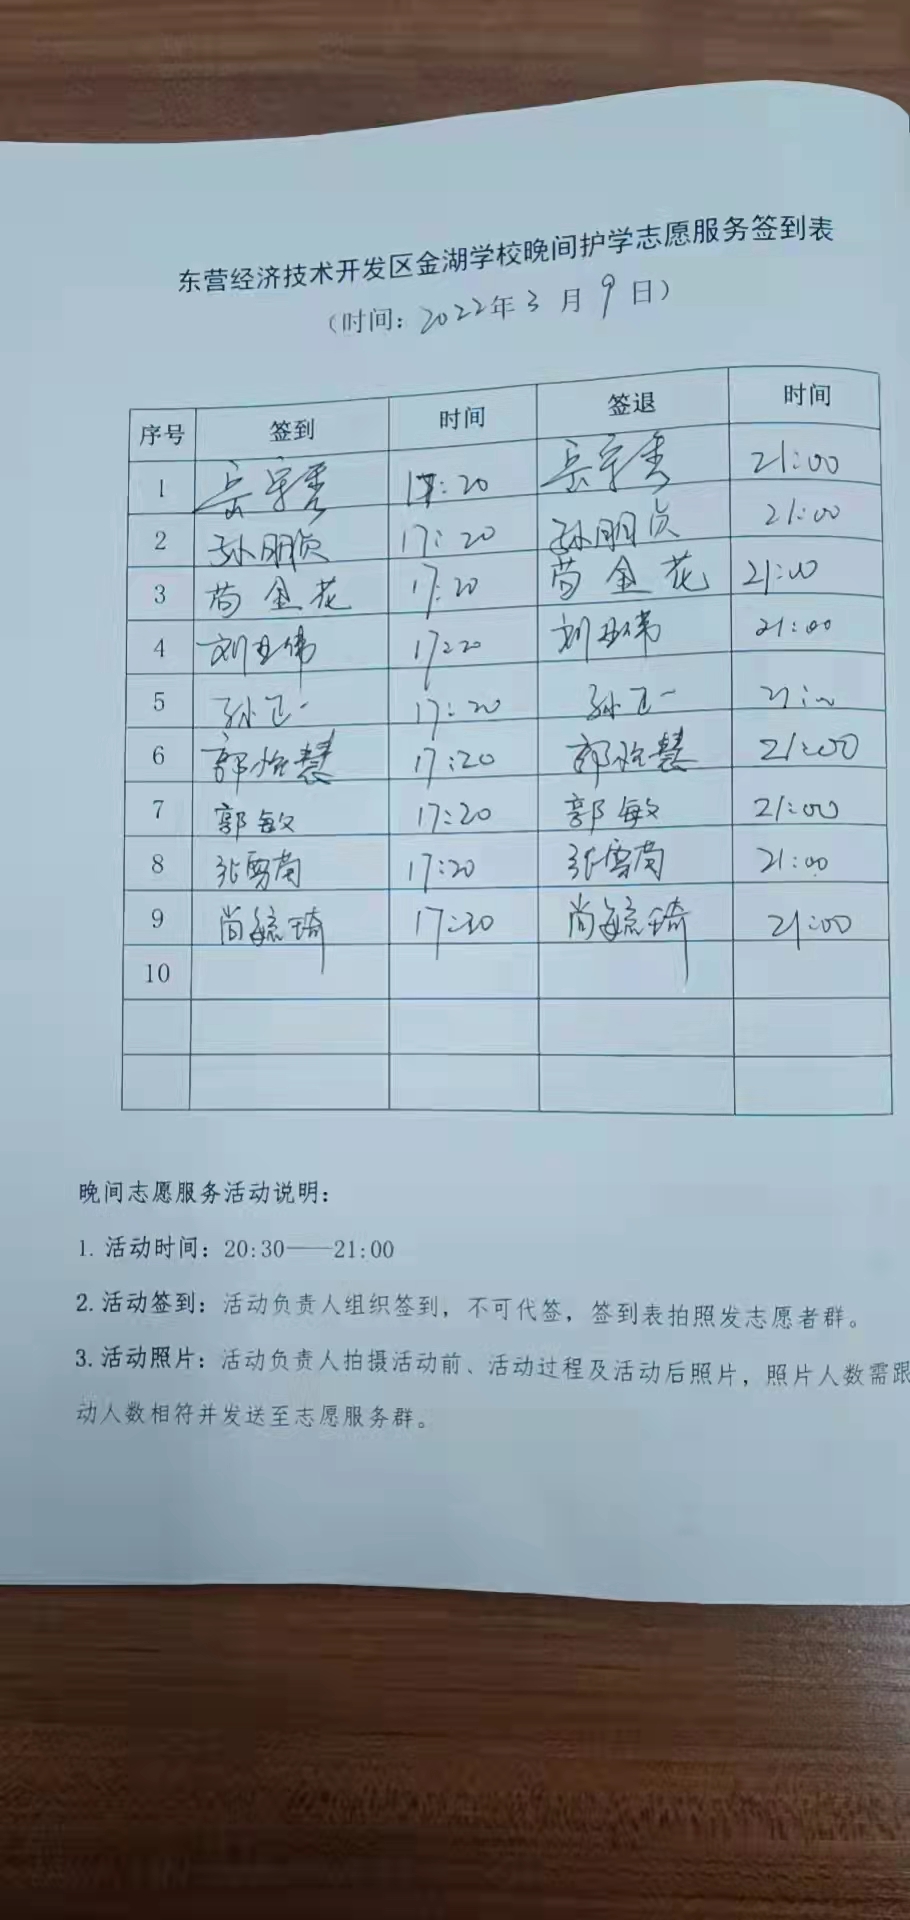 东营经济技术开发区金湖学校晚间护学志愿服务签到表
（时间：2022年3月9日）
序号 签到 时间 签退 时间
1 17:20 21:00
2 孙朋贞 17:20 孙朋贞 21:00
3 苟金花 17:20 苟金花 21:00
4 刘丑伟 17:20 刘丑伟 21:00
5 孙正一 17:20 孙正一 21:00
6 郭怡慧 17:20 郭怡慧 21:00
7 郭敏 17:20 郭敏 21:00
8 张雪菊 17:20 张雪菊 21:00
9 尚毓琦 17:20 尚毓琦 21:00
10
晚间志愿服务活动说明：
1. 活动时间：20:30——21:00
2. 活动签到：活动负责人组织签到，不可代签，签到表拍照发志愿者群。
3. 活动照片：活动负责人拍摄活动前、活动过程及活动后照片，照片人数需跟
动人数相符并发送至志愿服务群。